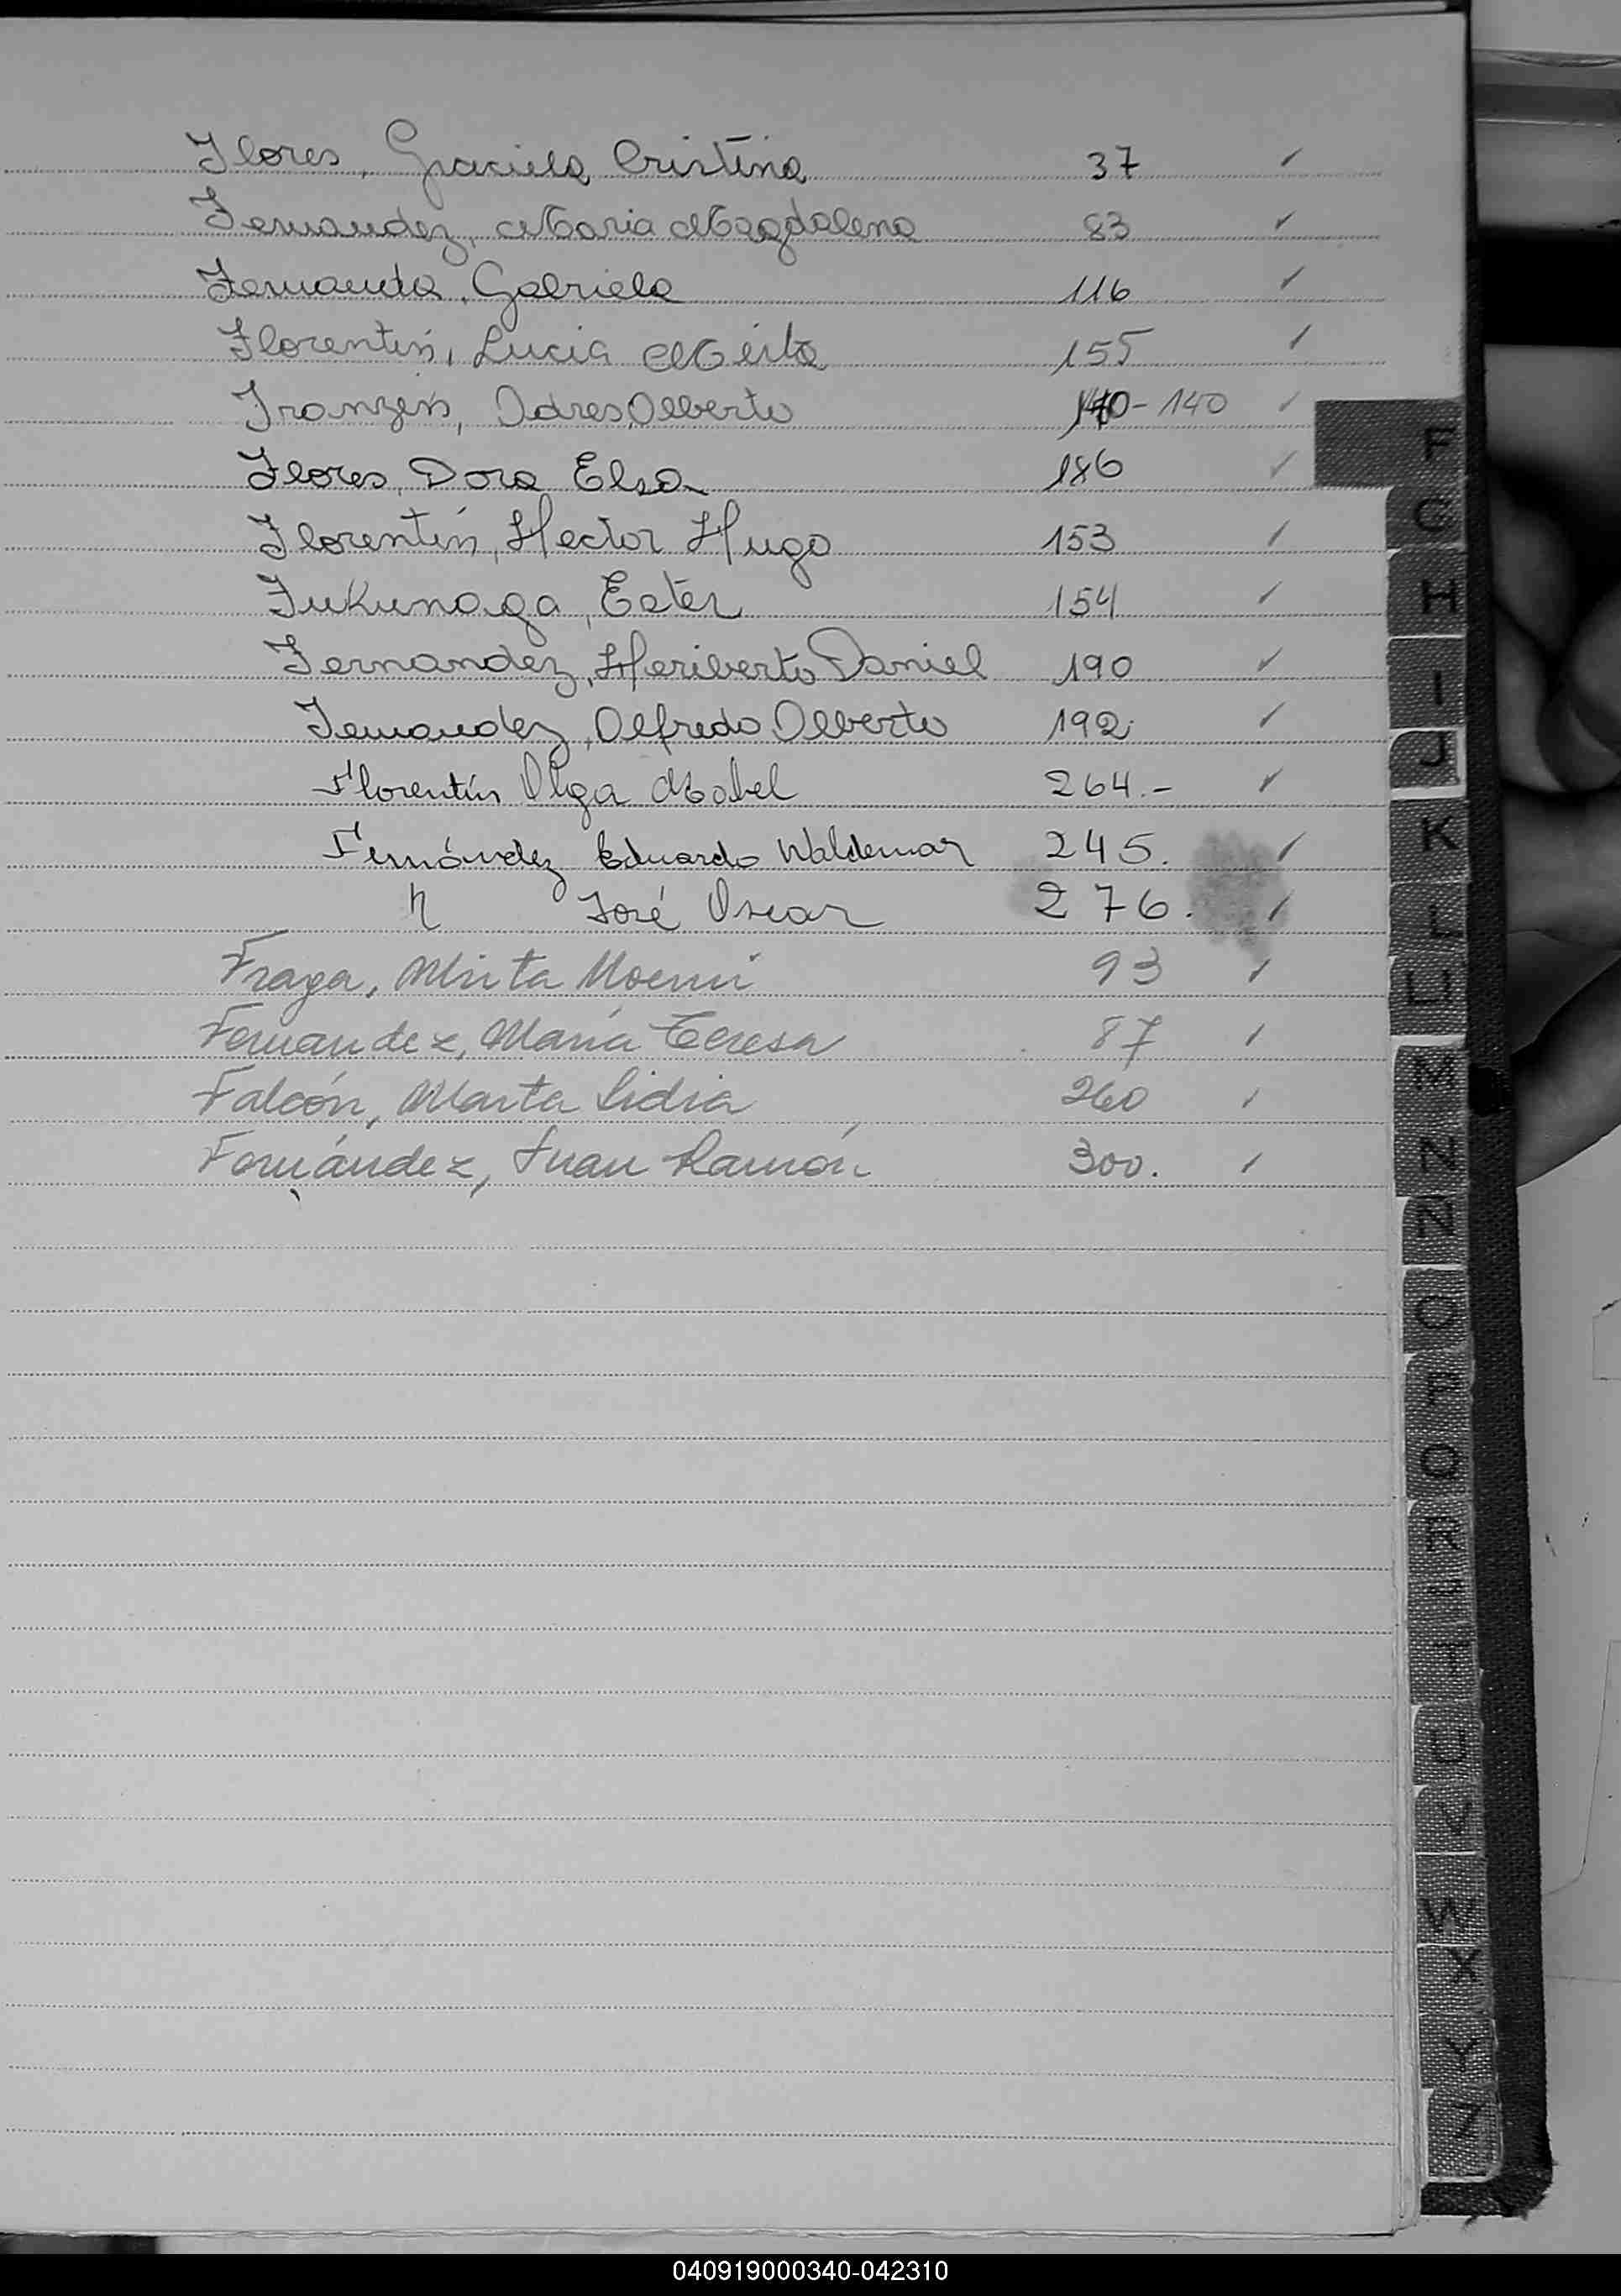 Flores, Graciela Cristina 37 ✓
Fernandez, Maria Magdalena 83 ✓
Fernanda, Gabriela 116 ✓
Florentin, Lucia Mirta 155 ✓
Franzen, Adres Alberto 140-140 ✓
Flores, Dora Elsa 186 ✓
Florentín, Hector Hugo 153 ✓
Fukunaga, Ester 154 ✓
Fernandez, Heriberto Daniel 190 ✓
Fernandez, Alfredo Alberto 192 ✓
Florentín Olga Mabel 264.- ✓
Fernández Eduardo Waldemar 245. ✓
" José Oscar 276. ✓
Fraga, Mirta Noemi 93 ✓
Fernandez, María Teresa 87 ✓
Falcón, Marta Lidia 260 ✓
Fernández, Juan Ramón 300. ✓
F
G
H
I
J
K
L
LL
M
N
Ñ
O
P
Q
R
S
T
U
V
W
X
Y
Z
040919000340-042310